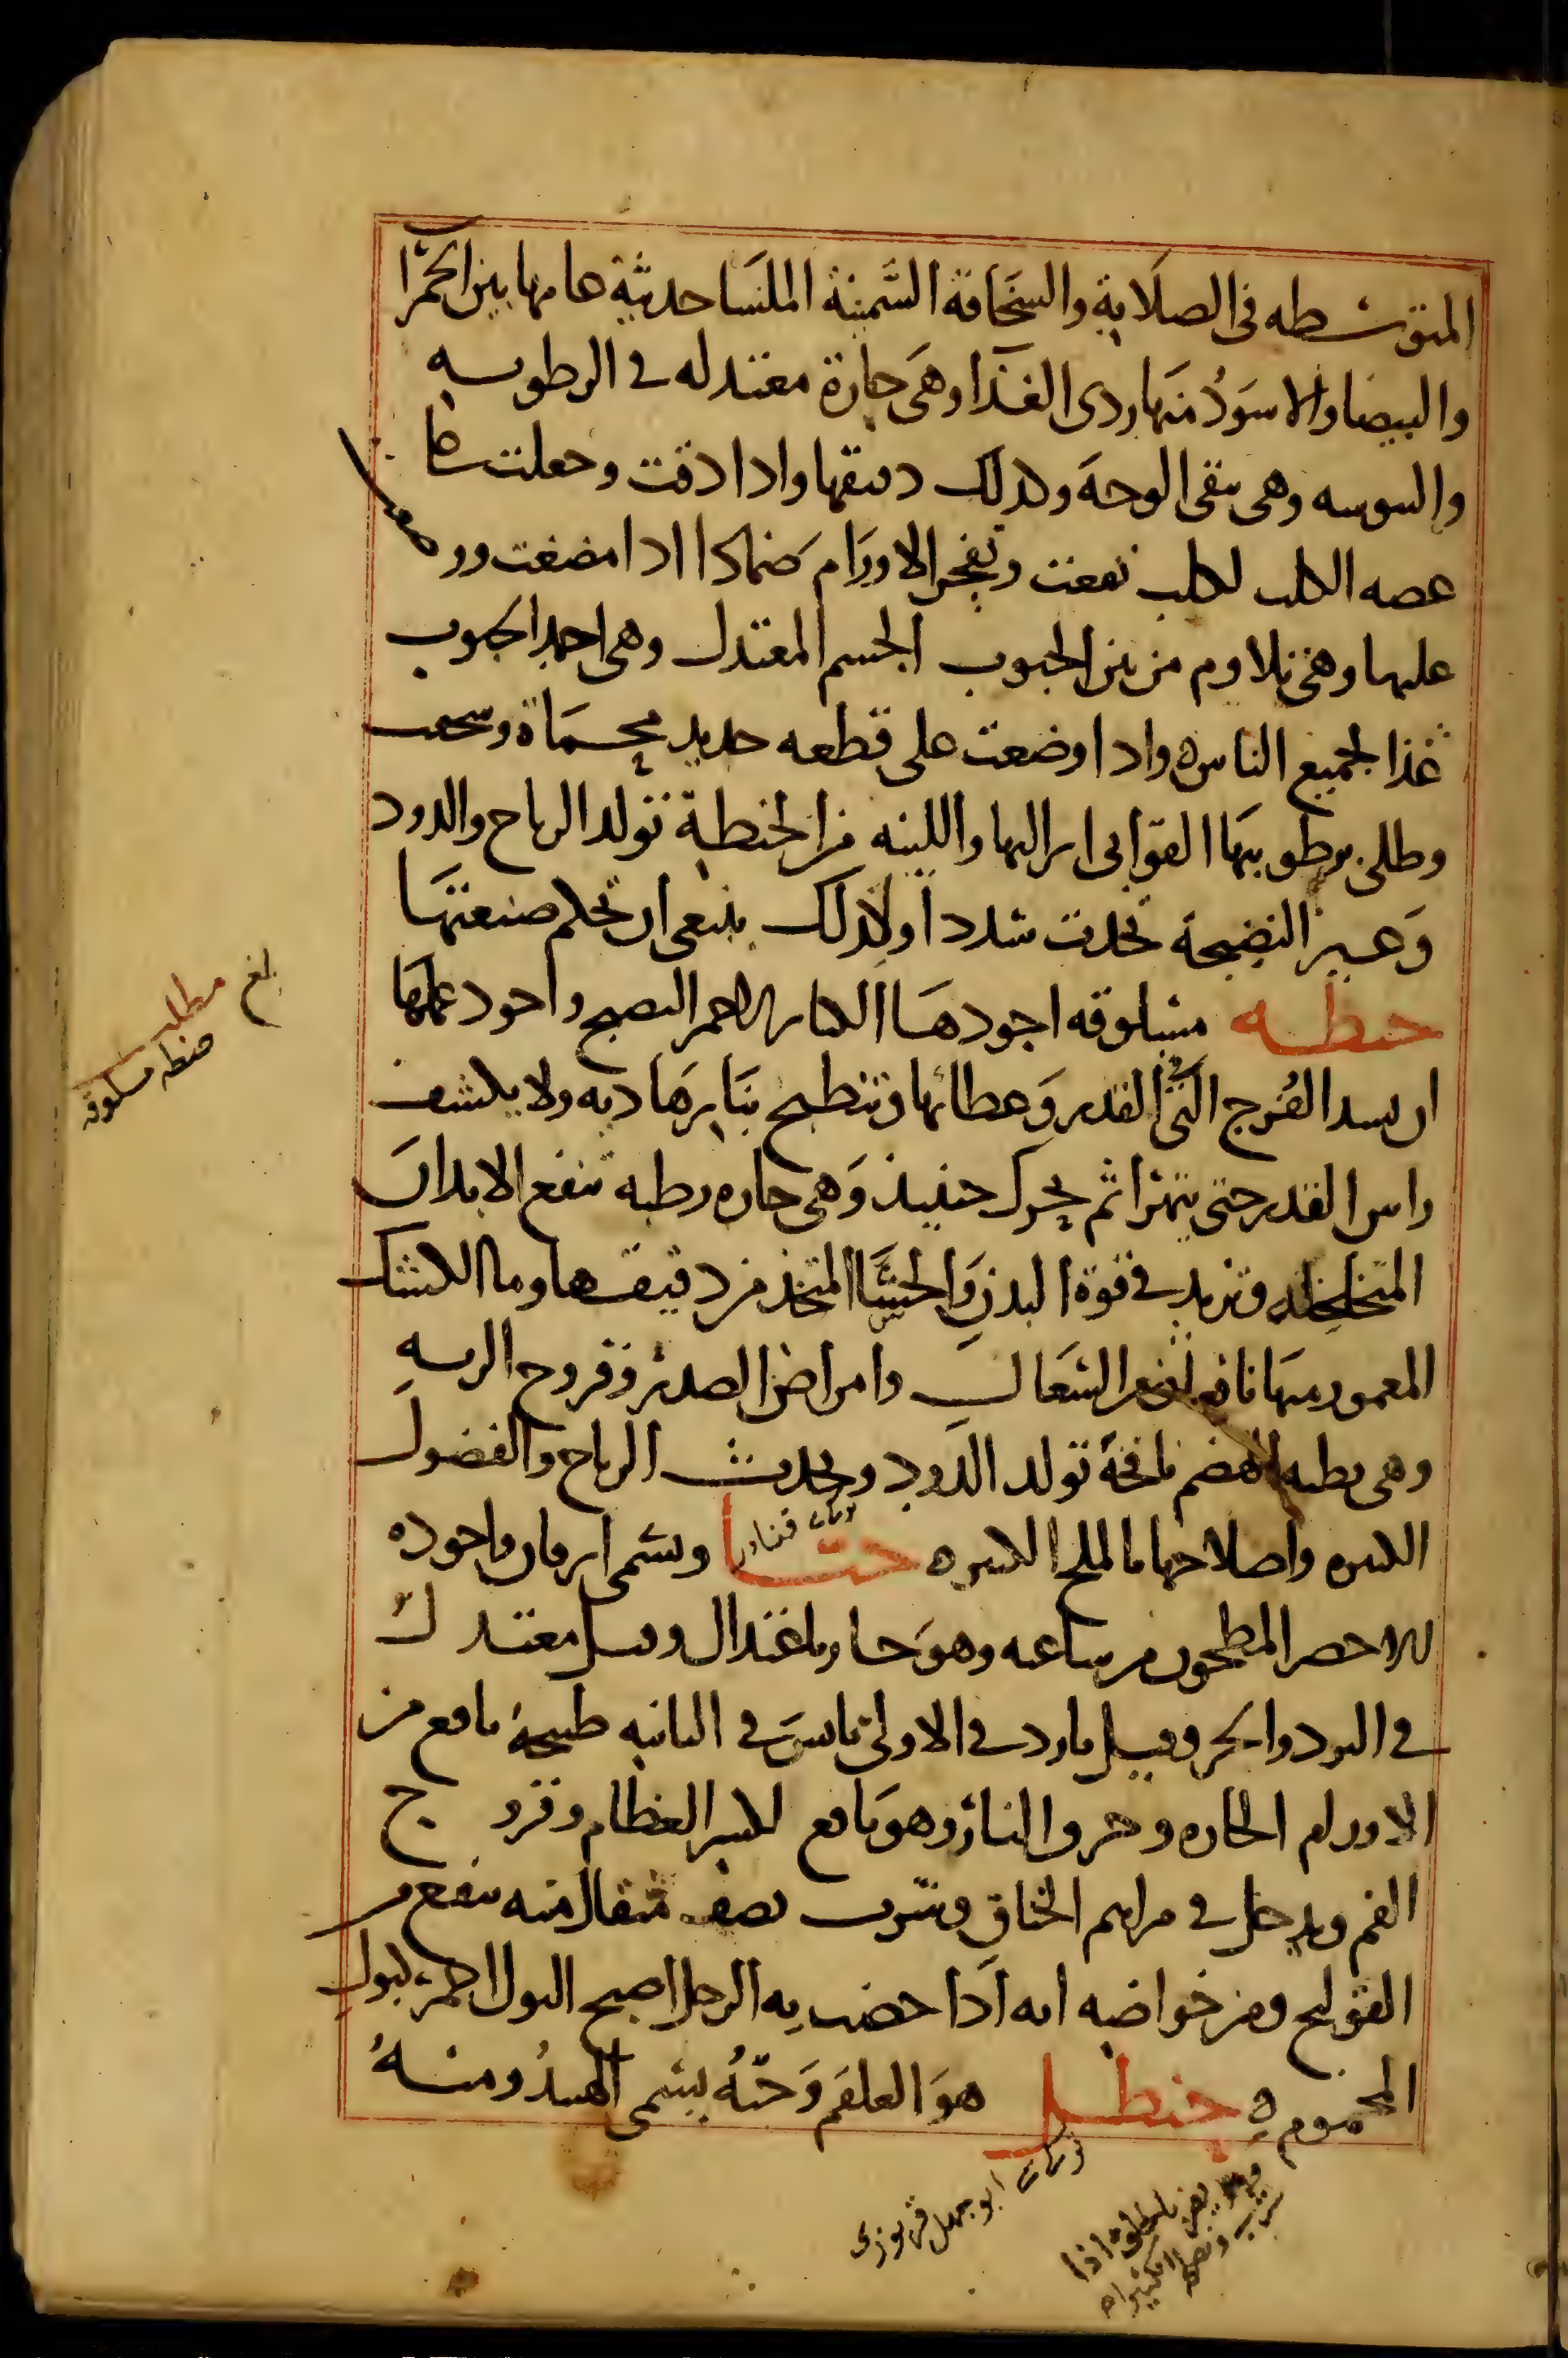 المتوسطه في الصلابة والسخافة السمينة الملسا حديثة هامها بين الحمرا
والبيضا والاسود منها ردي الغذا وهي حارة معتدله في الرطوبه
واليبوسه وهي تنقي الوجه وكذلك دقيقها واذا دقت وجعلت على
عضه الكلب الكلب نفعت وتفجر الاورام ضمادا اذا مضغت ووضعت
عليها وهي تلاوم من بين الحبوب الجسم المعتدل وهي احمد الحبوب
غذا لجميع الناس واذا وضعت على قطعه حديد محماة وسحقت
وطلي برطوبتها القوابي ابرا لها واللينه من الحنطة تولد الرياح والدود
وغير النضيجة تحدث سددا ولذلك ينبغي ان تحكم صنعتها
حنطه مسلوقه اجودها الكبار الاحمر النضيج واجود عملها
ان يسد الفرج التي في القدر وغطائها وتطبخ بنار هاديه ولا يكشف
راس القدر حتى يتهرا ثم يحرك حينيذ وهي حاره رطبه تنفع الابدان
المتخلخله وتزيد في قوة البدن والحسا المتخذ من دقيقها وما الكشك
المعمول منها نافع السعال وامراض الصدر وقروح الريه
وهي بطيه الهضم نافخة تولد الدود وتحدث الرياح والفضول
الكثيره واصلاحها بالملح الكثيره حنا ويسمى ايرقان واجوده
الاخضر المطحون من ساعه وهو حار باعتدال وقيل معتدل
في البرد والحر وقيل بارد في الاولى يابس في الثانيه طبيخه نافع من
الاورام الحاره وحرق النار وهو نافع لكسر العظام وقروح
الفم ويدخل في مراهم الخناق وشرب نصف مثقال منه ينفع من
القولنج ومن خواصه انه اذا خضب به الرجل اصبح البول احمر كبول
المحموم حنظل هو العلقم وحبه يسمى الهبيد ومنه
بلغ
مطلب
حنطه مسلوقه
ابو جهل قربوزى